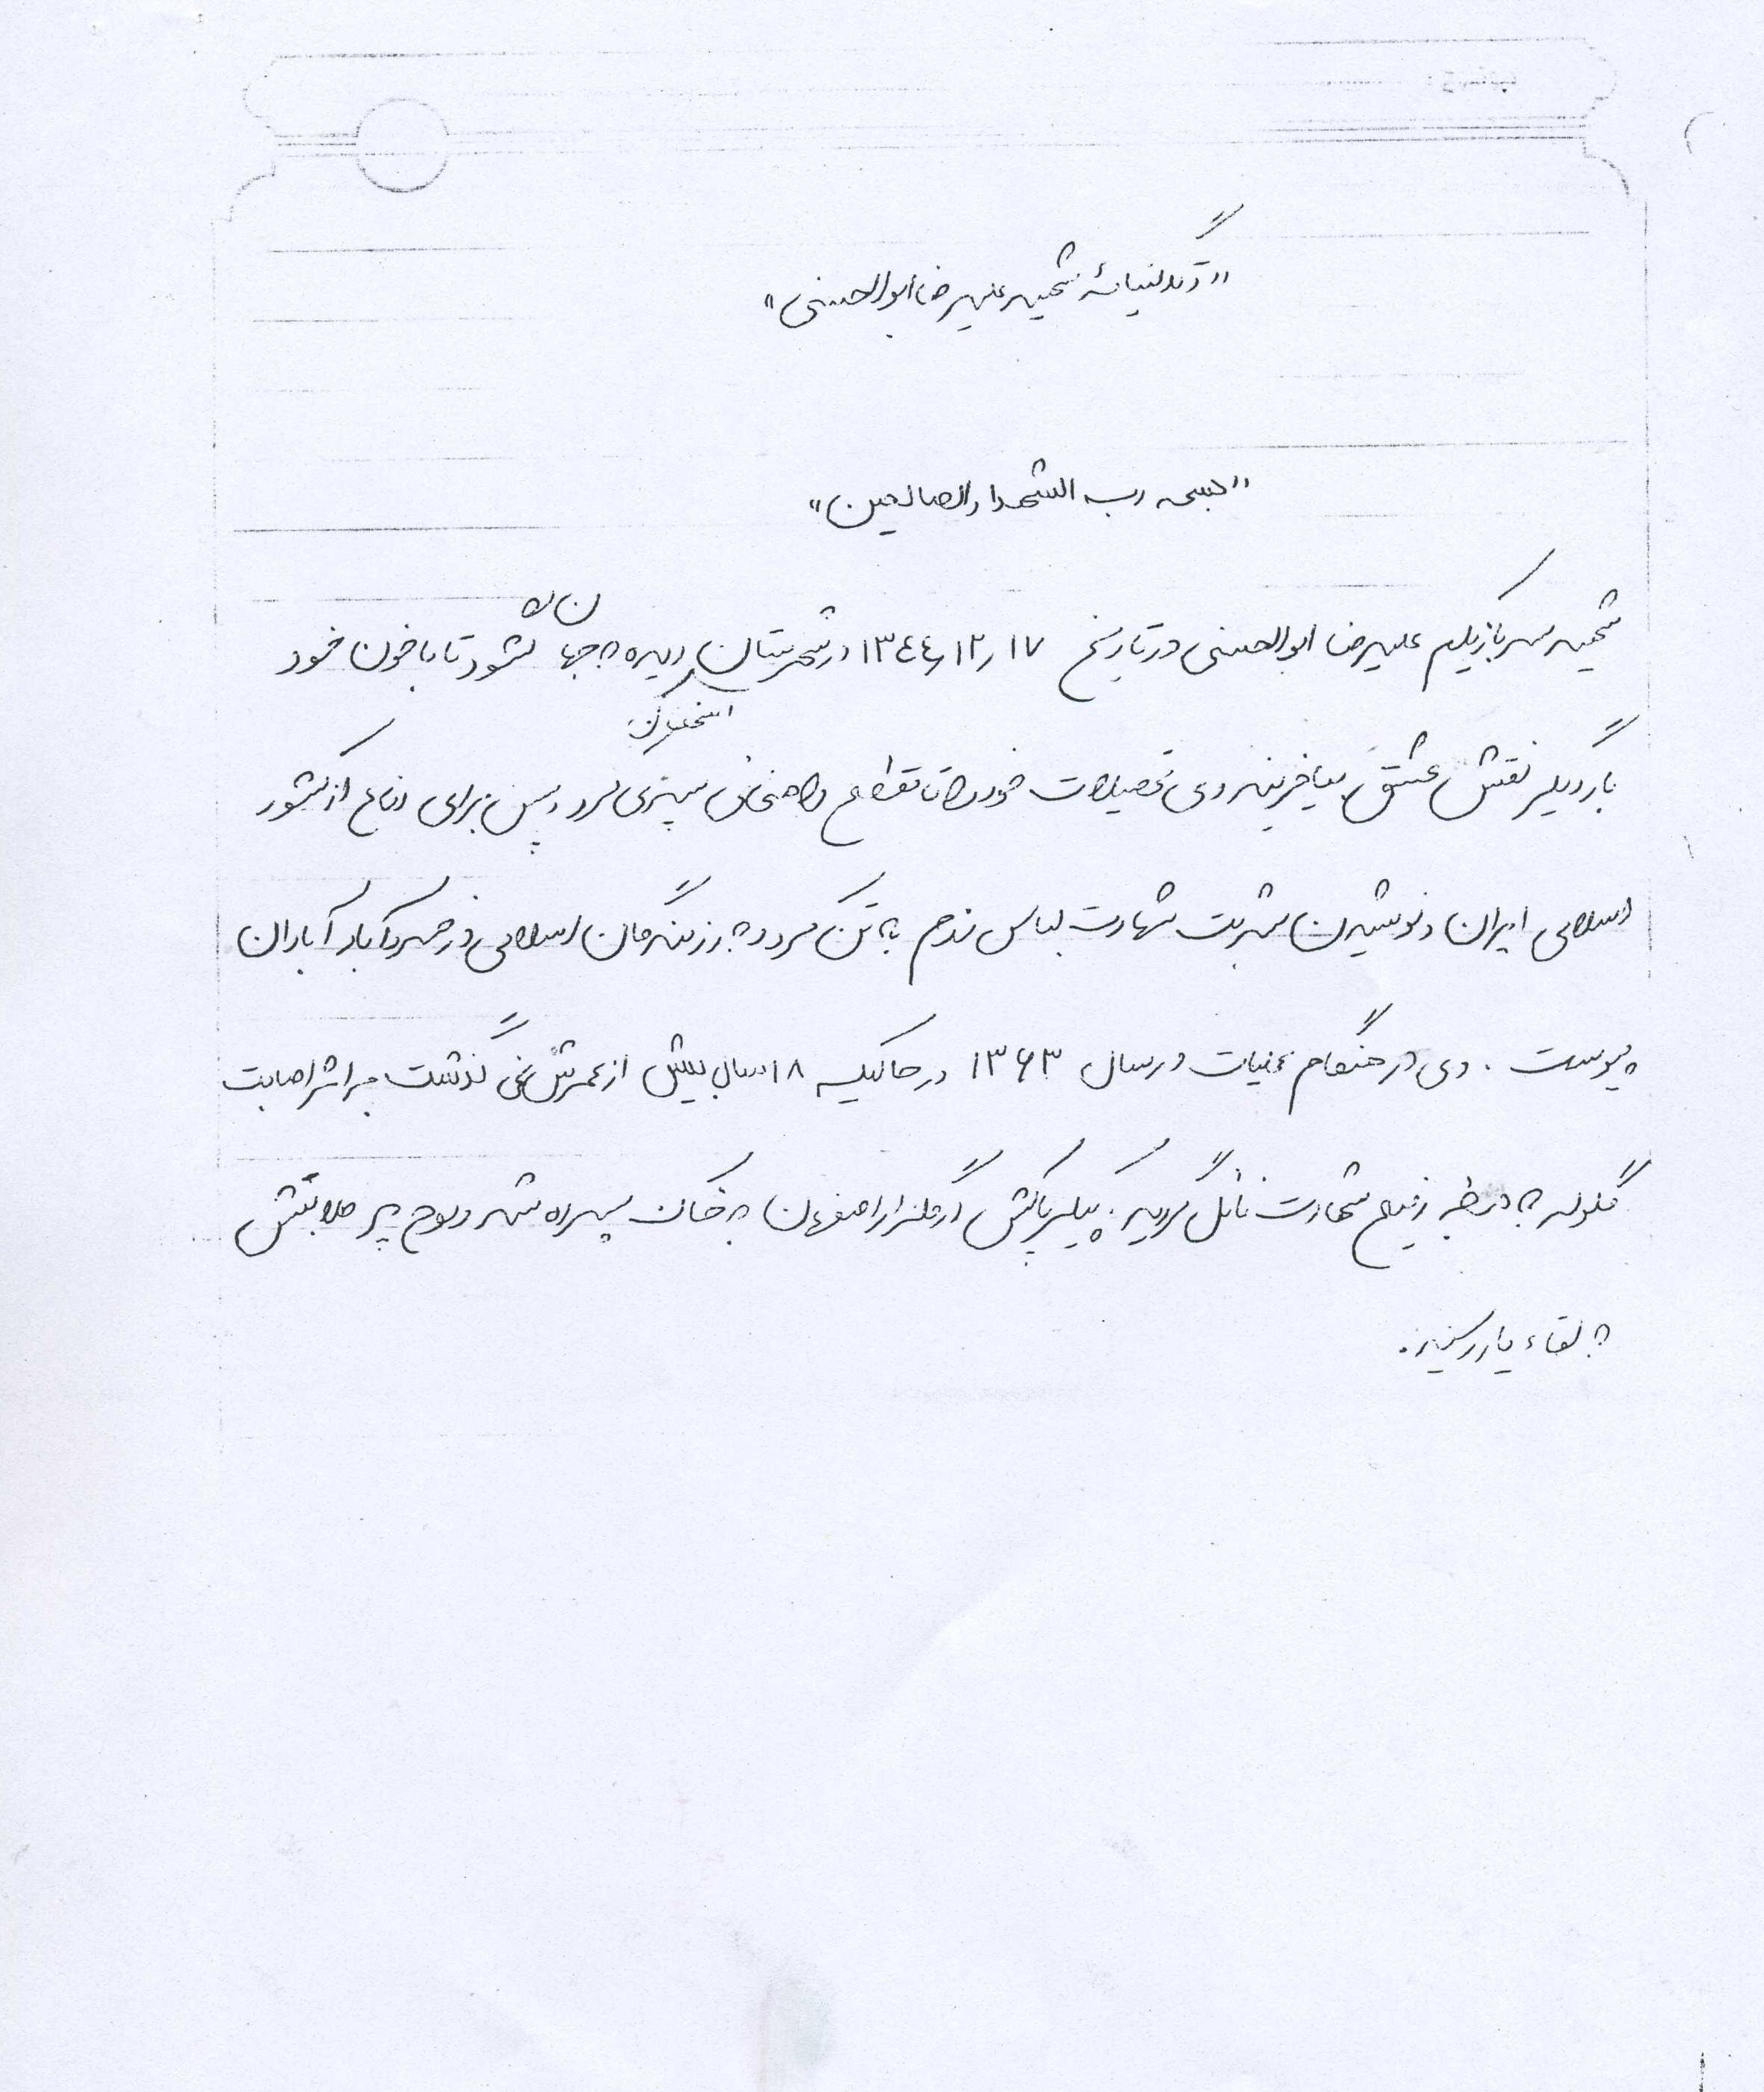 "زندگینامۀ شهید علیرضا ابوالحسنی"
"بسمه رب الشهدا والصالحین"
شهید سرباز یکم علیرضا ابوالحسنی در تاریخ ۱۳۴۴/۱۲/۱۷ در شهرستان اصفهان دیده به جهان گشود تا با خون خود
بار دیگر نقش عشق بیافریند وی تحصیلات خود را تا مقطع راهنمائی سپری کرد و پس برای دفاع از کشور
اسلامی ایران و نوشیدن شربت شهادت لباس رزم به تن کرد و به رزمندگان اسلامی در خسروآباد آبادان
پیوست . وی در هنگام عملیات در سال ۱۳۶۳ در حالیکه ۱۸ سال بیش از عمرش نمی گذشت بر اثر اصابت
گلوله به درجه رفیع شهادت نائل گردید. پیکر پاکش در گلزار اصفهان به خاک سپرده شد و روح پر صلابتش
به لقاء یار رسید.